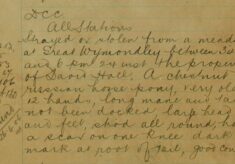 DCC
All Stations
Strayed or stolen from a mead
at Great Wymondley between
and 6 pm 24 inst the proper
of David Hall. A chestnut
russian horse pony, very old
12 hands, long mane and ta
not been docked. Large head
and feet, shod all round, ha
a scar on one knee dark
mark at root of tail, good con